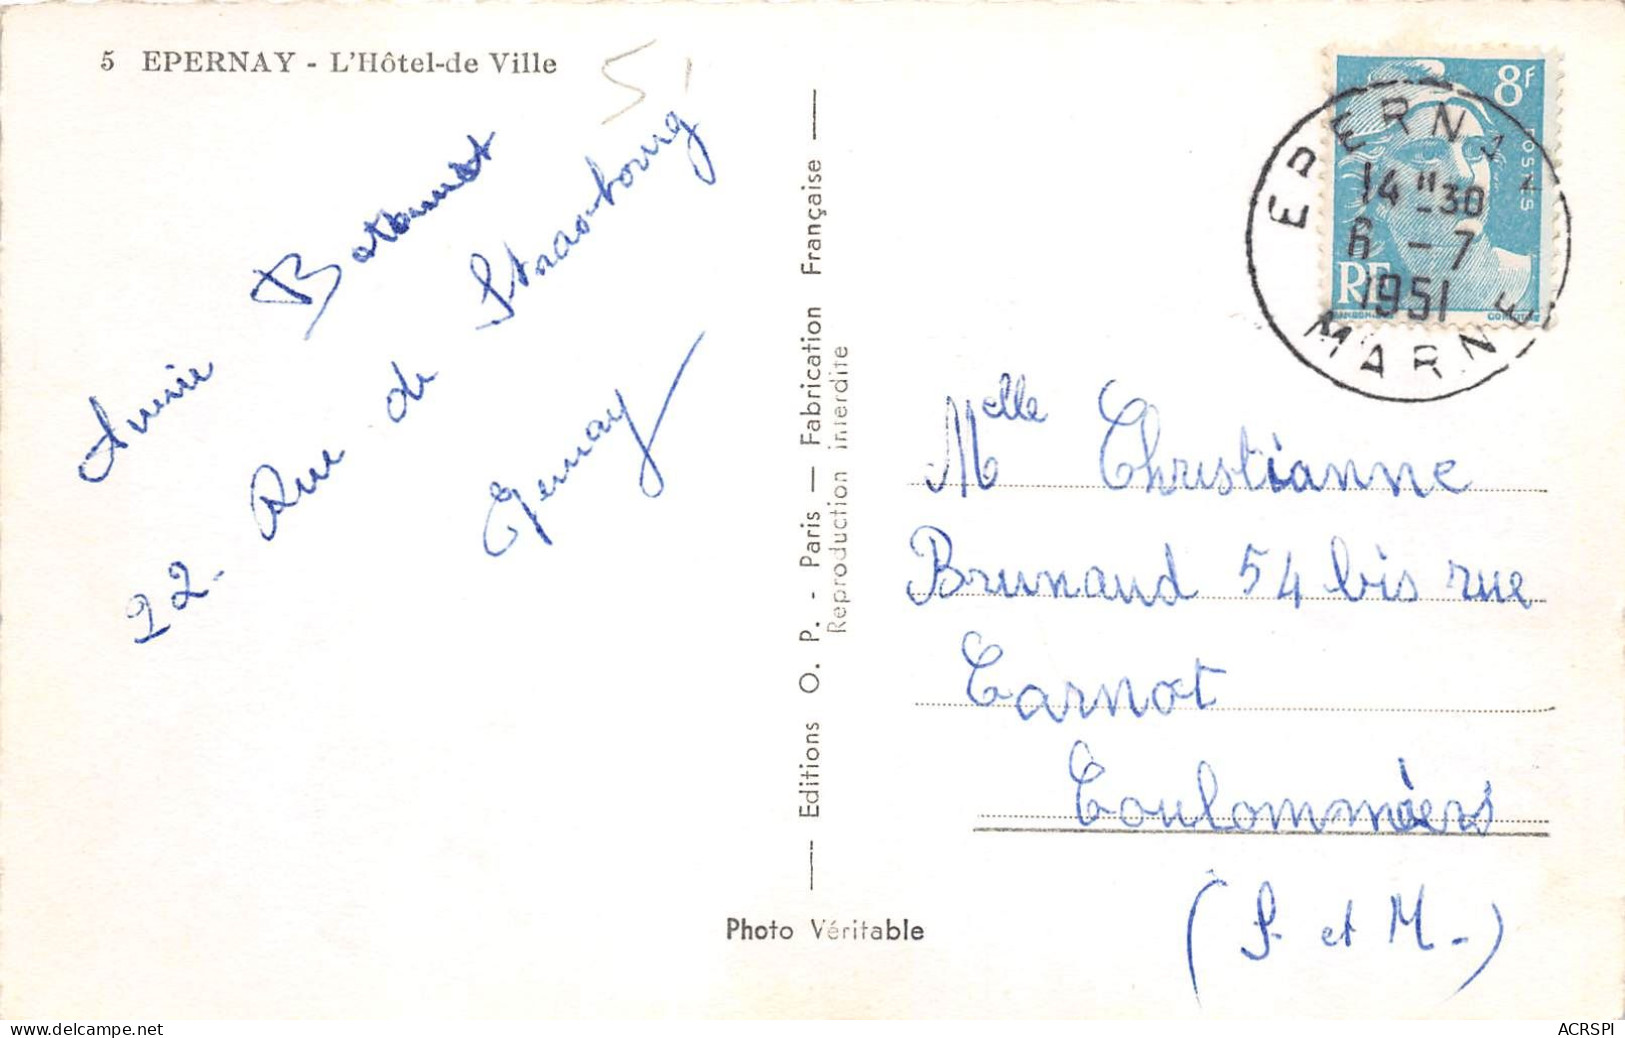 5 EPERNAY - L'Hôtel-de Ville
5
Annie
22. Rue de Strasbourg
Epernay
Editions O. P. - Paris — Fabrication Française
Reproduction interdite
Photo Véritable
8F
POSTES
RF
EPERNAY
14 H 30
6 - 7
1951
MARNE
Melle Christianne
Brunaud 54 bis rue
Carnot
Coulommiers
(S. et M.)
www.delcampe.net
ACRSPI